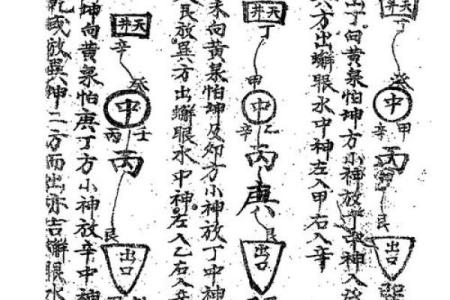 天井
丁
癸
中
甲
辛
丙
艮
出口
丁向黃泉怕坤方小神放
方出蠏眼水中神左入甲右入辛
天井
丁
甲
中
乙
辛
丙庚
艮
出口
未向黃泉怕坤及卯方小神放丁中神
放巽方出蠏眼水中神左入乙右入
天井
辛
癸
中
壬
丙
丙
艮
出口
坤向黃泉怕庚丁方小神放辛中神
乾或放巽坤二方而出亦吉蠏眼水